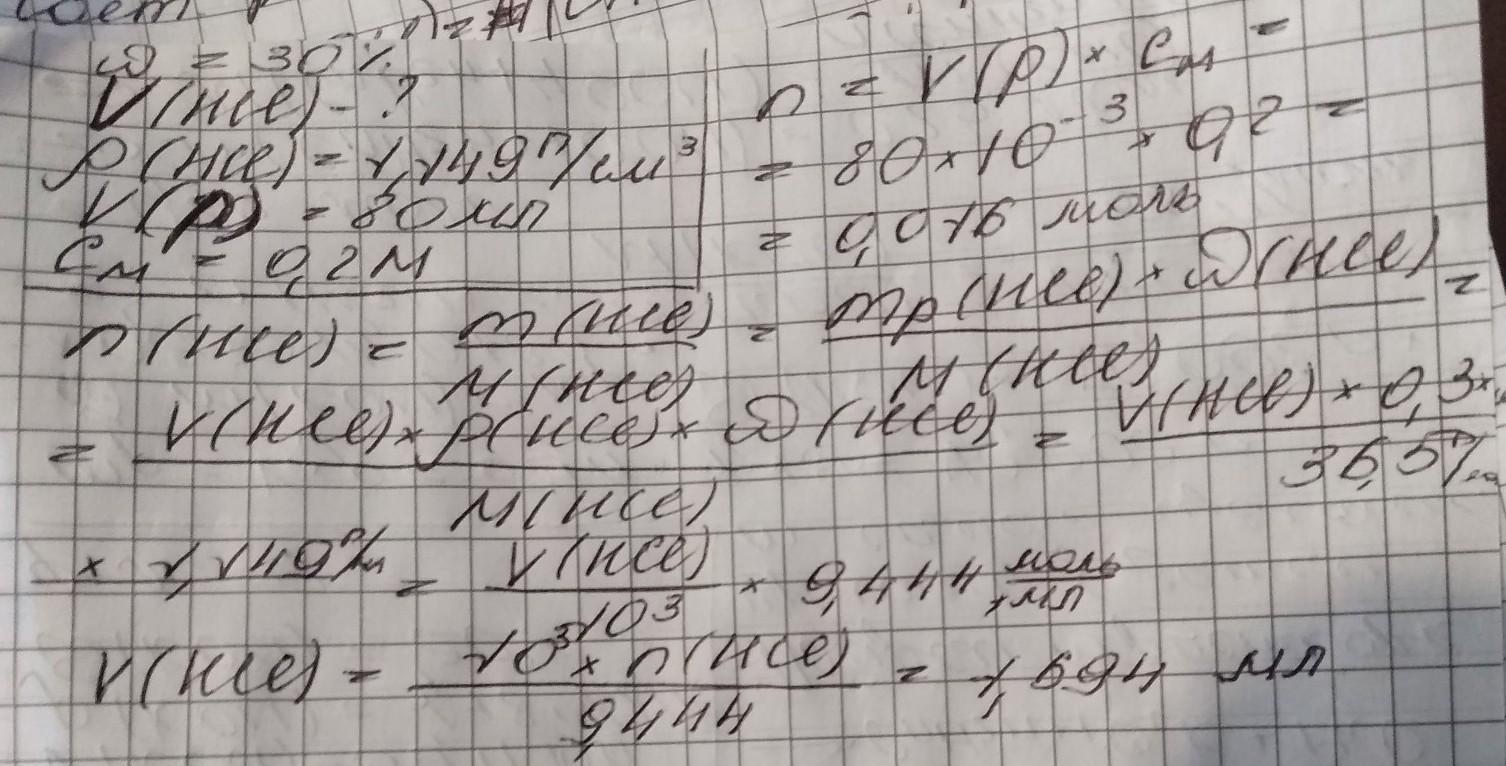 ω = 30%
V(HCl) - ?
ρ(HCl) = 1,149 г/см³
V(р) = 80 мл
Cм = 0,2 М
n = V(р) × Cм =
= 80 × 10⁻³ × 0,2 =
= 0,016 моль
n(HCl) = m(HCl) / M(HCl) = mр(HCl) × ω(HCl) / M(HCl) =
= V(HCl) × ρ(HCl) × ω(HCl) / M(HCl) = V(HCl) × 0,3 × / 36,5 г/мо
× 1,149 г/мл = V(HCl) / 10³ × 9,444 моль/мл
V(HCl) = 10³ × n(HCl) / 9,444 = 1,694 мл